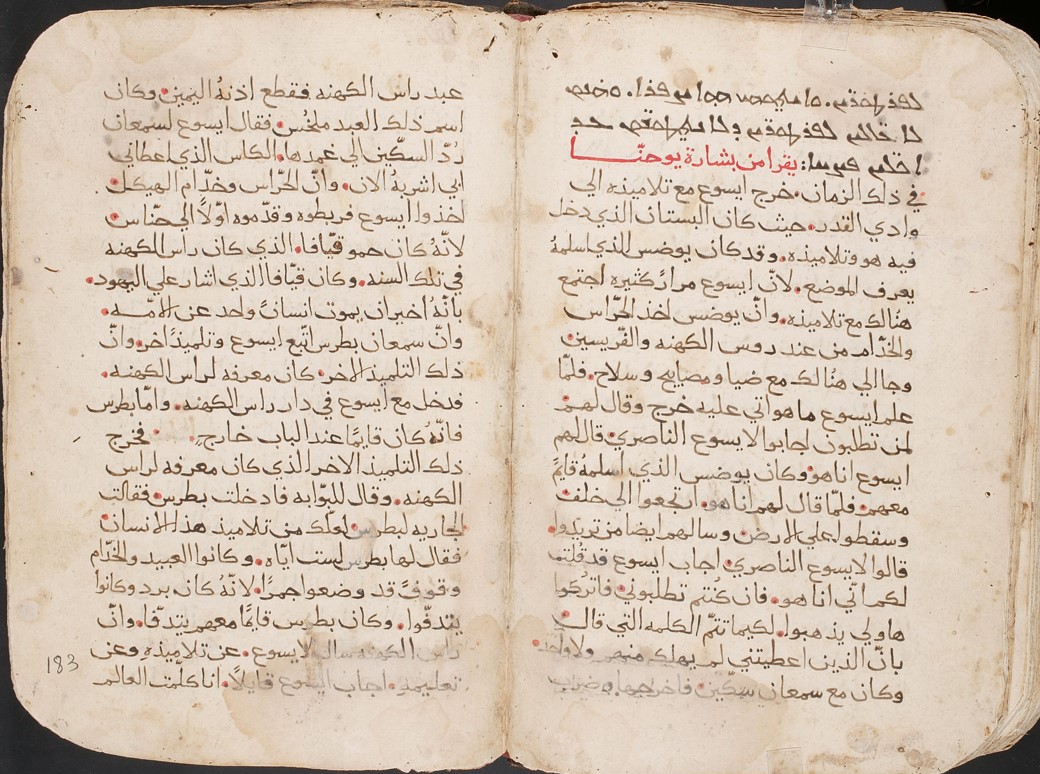 يقرا من بشارة يوحنا
في ذلك الزمان. خرج ايسوع مع تلاميذه الي
وادي القدر. حيث كان البستان الذي دخل
فيه هو وتلاميذه. وقد كان يوضس الذي اسلمهُ
يعرف الموضع. لانّ ايسوع مرارً كثيره اجتمع
هنالك مع تلاميذه. وانّ يوضس اخذ الحرّاس
والخدّام من عند روس الكهنه والفريسين
وجا الي هنالك مع ضيا ومصابيح وسلاح. فلمّا
علم ايسوع ما هو اتي عليه خرج وقال لهم
لمن تطلبون اجابوا لايسوع الناصري. قال لهم
ايسوع انا هو. وكان يوضس الذي اسلمهُ قايمً
معهم. فلمّا قال لهم انا هو. ارتجعوا الي خلف
وسقطوا علي الارض. وسالهم ايضا من تريدوا
قالوا لايسوع الناصري. اجاب ايسوع قد قلت
لكم انّي انا هو. فان كُنتم تطلبوني. فاتركوا
هاولي يذهبوا. لكيما تتمّ الكلمه التي قال
بانّ الذين اعطيتني لم يهلك منهم ولا واحد.
وكان مع سمعان سكّين. فاخرجها وضرب
عبد راس الكهنه. فقطع اذنهُ اليمين. وكان
اسم ذلك العبد ملخُس. فقال ايسوع لسمعان
رُدّ السكّين الي غمدها. الكاس الذي اعطاني
ابي اشربهُ الان. وانّ الحرّاس وخدّام الهيكل.
اخذوا ايسوع فربطوه وقدّموه اوّلاً الي حنّاس.
لانّهُ كان حمو قيّافا. الذي كان راس الكهنه
في تلك السنه. وكان قيّافا الذي اشار علي اليهود.
بانّهُ اخير ان يموت انسانً واحد عن الامّه.
وانّ سمعان بطرس اتّبع ايسوع وتلميذً اخر. وانّ
ذلك التلميذ الاخر. كان معرفه لراس الكهنه.
فدخل مع ايسوع في دار راس الكهنه. وامّا بطرس
فانّهُ كان قايمًا عند الباب خارج. فخرج
ذلك التلميذ الاخر الذي كان معرفه لراس
الكهنه. وقال للبوّابه فادخلت بطرس. فقالت
الجاريه لبطرس. لعلّك من تلاميذ هذا الانسان
فقال لها بطرس لست ايّاه. وكانوا العبيد والخدّام
وقوفً قد وضعوا جمرًا. لانّهُ كان برد وكانوا
يتدفّوا. وكان بطرس قايمًا معهم يتدفّا. وانّ
راس الكهنه سال لايسوع. عن تلاميذه وعن
تعليمه. اجاب ايسوع قايلاً. انا كلّمت العالم
183